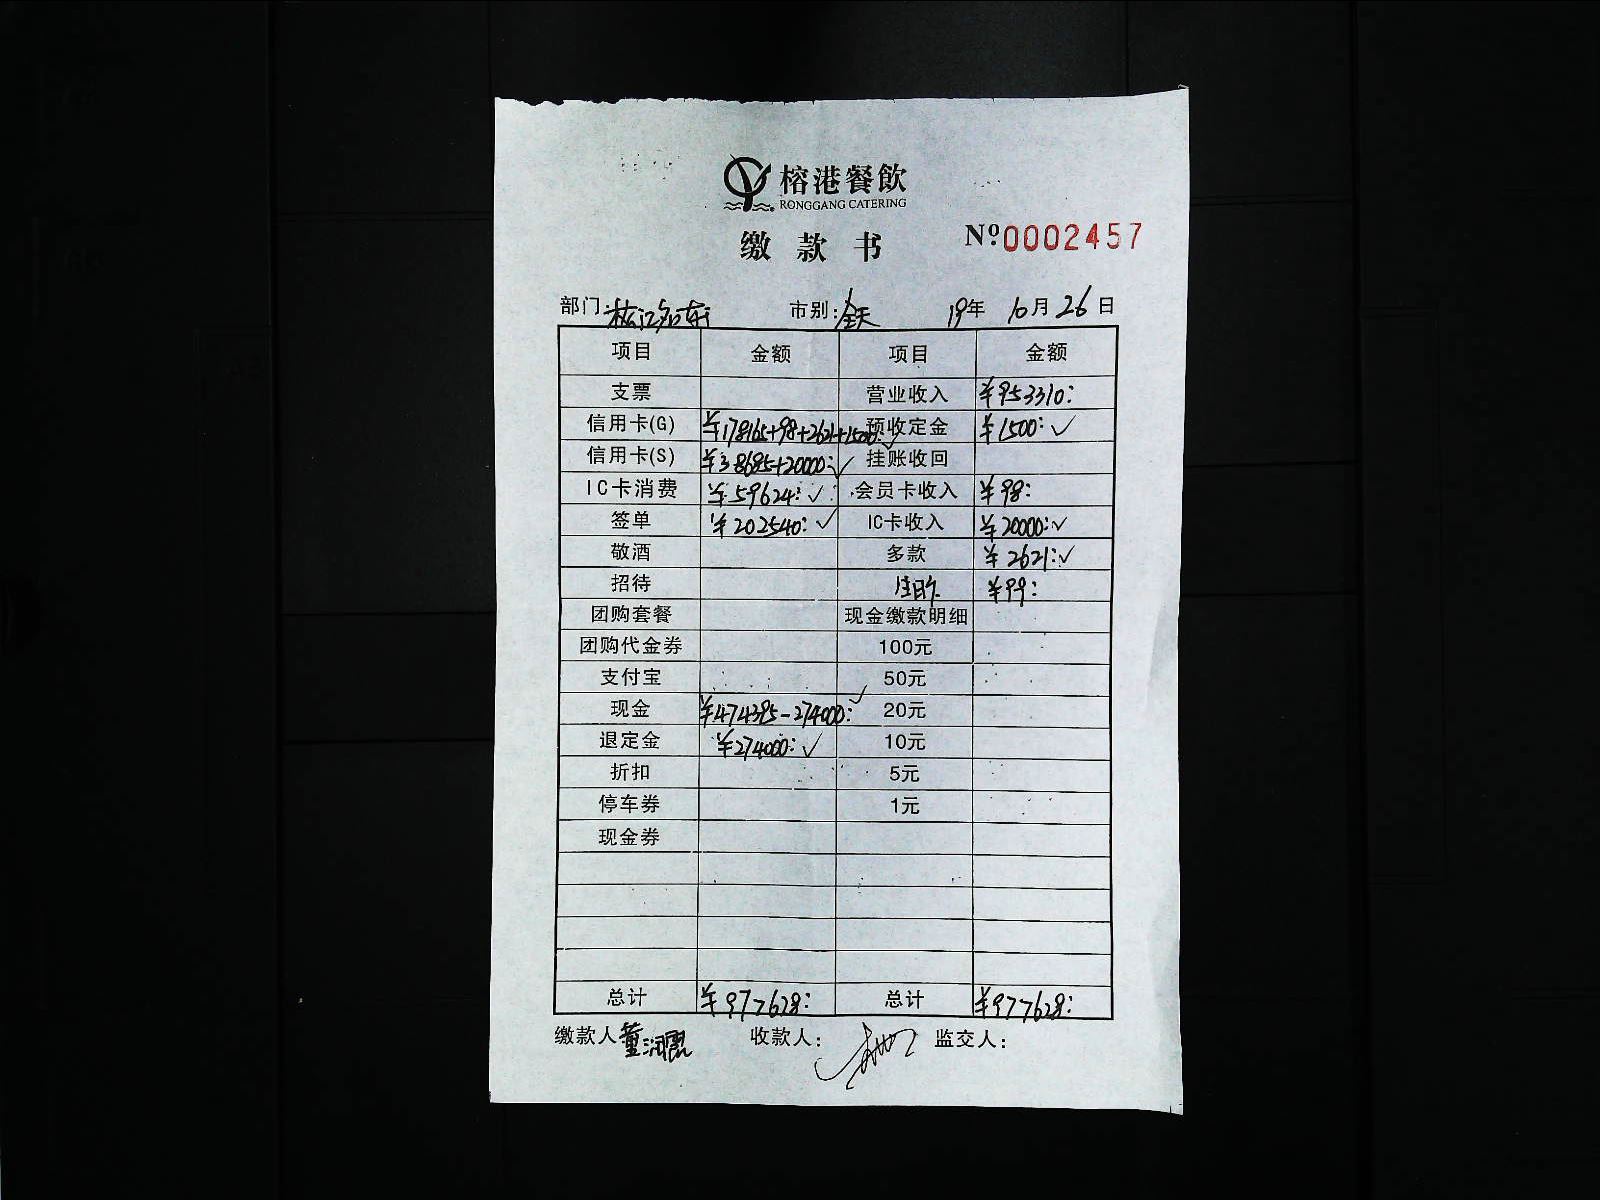 榕港餐飲
RONGGANG CATERING
缴款书
Nº 0002457
部门: 松江 市别: 全天 19年 10月 26日
项目 金额 项目 金额
支票 营业收入 ¥953310:
信用卡(G) ¥178165+98+2621+1500: 预收定金 ¥1500: ✓
信用卡(S) ¥38685+20000: ✓ 挂账收回
IC卡消费 ¥59624: ✓ 会员卡收入 ¥98:
签单 ¥202540: ✓ IC卡收入 ¥20000: ✓
敬酒 多款 ¥2621: ✓
招待 ¥99:
团购套餐 现金缴款明细
团购代金券 100元
支付宝 50元
现金 ¥474395-274000: ✓ 20元
退定金 ¥274000: ✓ 10元
折扣 5元
停车券 1元
现金券
总计 ¥977628: 总计 ¥977628:
缴款人 董润 收款人: 监交人: